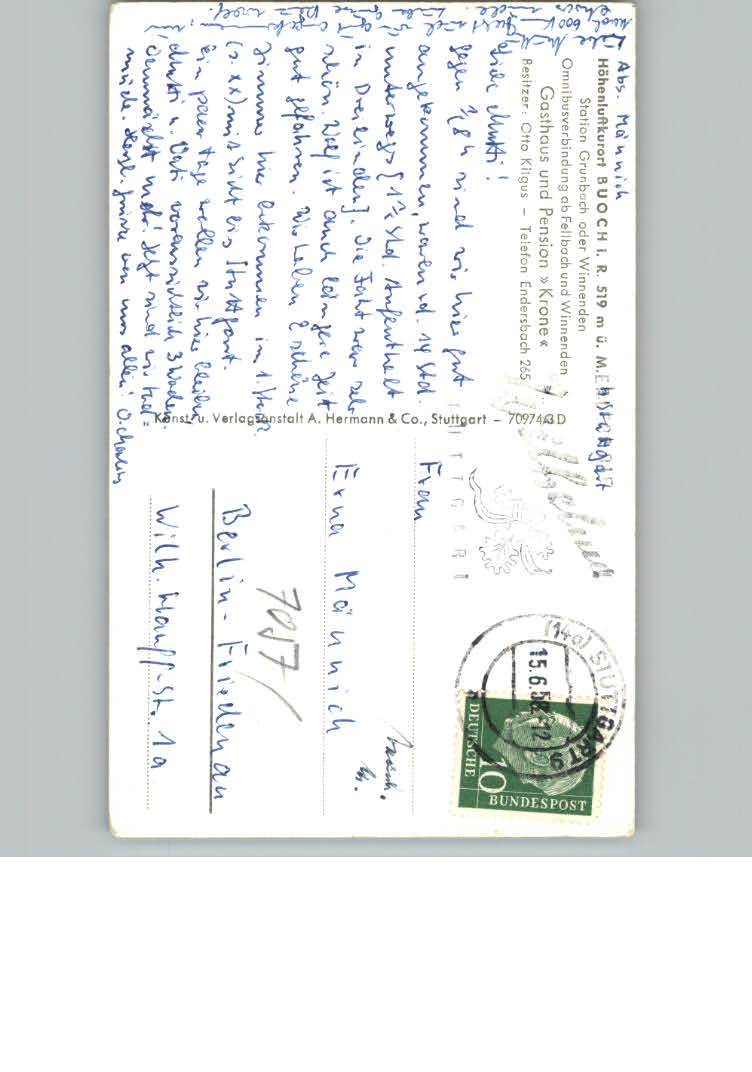 Abs. Männich
Höhenluftkurort BUOCH i. R. 519 m ü. M.
Station Grunbach oder Winnenden
Omnibusverbindung ab Fellbach und Winnenden
Gasthaus und Pension »Krone«
Besitzer: Otto Kilgus – Telefon Endersbach 265
Liebe Mutti!
Gegen ½8 h sind wir hier gut
angekommen, waren ca. 14 Std
unterwegs [1½ Std. Aufenthalt
in Dreilinden]. Die Fahrt war sehr
schön. Wolf ist auch längere Zeit
gut gefahren. Wir haben 2 schöne
Zimmer hier bekommen im 1. Stock
(s. xx) mit Sicht bis Stuttgart.
Ein paar Tage wollen wir hier bleiben
Mutti u. Vati voraussichtlich 3 Wochen.
Demnächst mehr! Jetzt sind wir
müde. Herzl. Grüsse von uns allen!
Kunst- u. Verlagsanstalt A. Hermann & Co., Stuttgart – 70974/3 D
STUTTGART
(14a) STUTTGART 9
15.6.58.-12
DEUTSCHE
BUNDESPOST
10
Frau
Erna Männich
7057/
Berlin-Friedenau
Wilh. Hauff-St. 1a